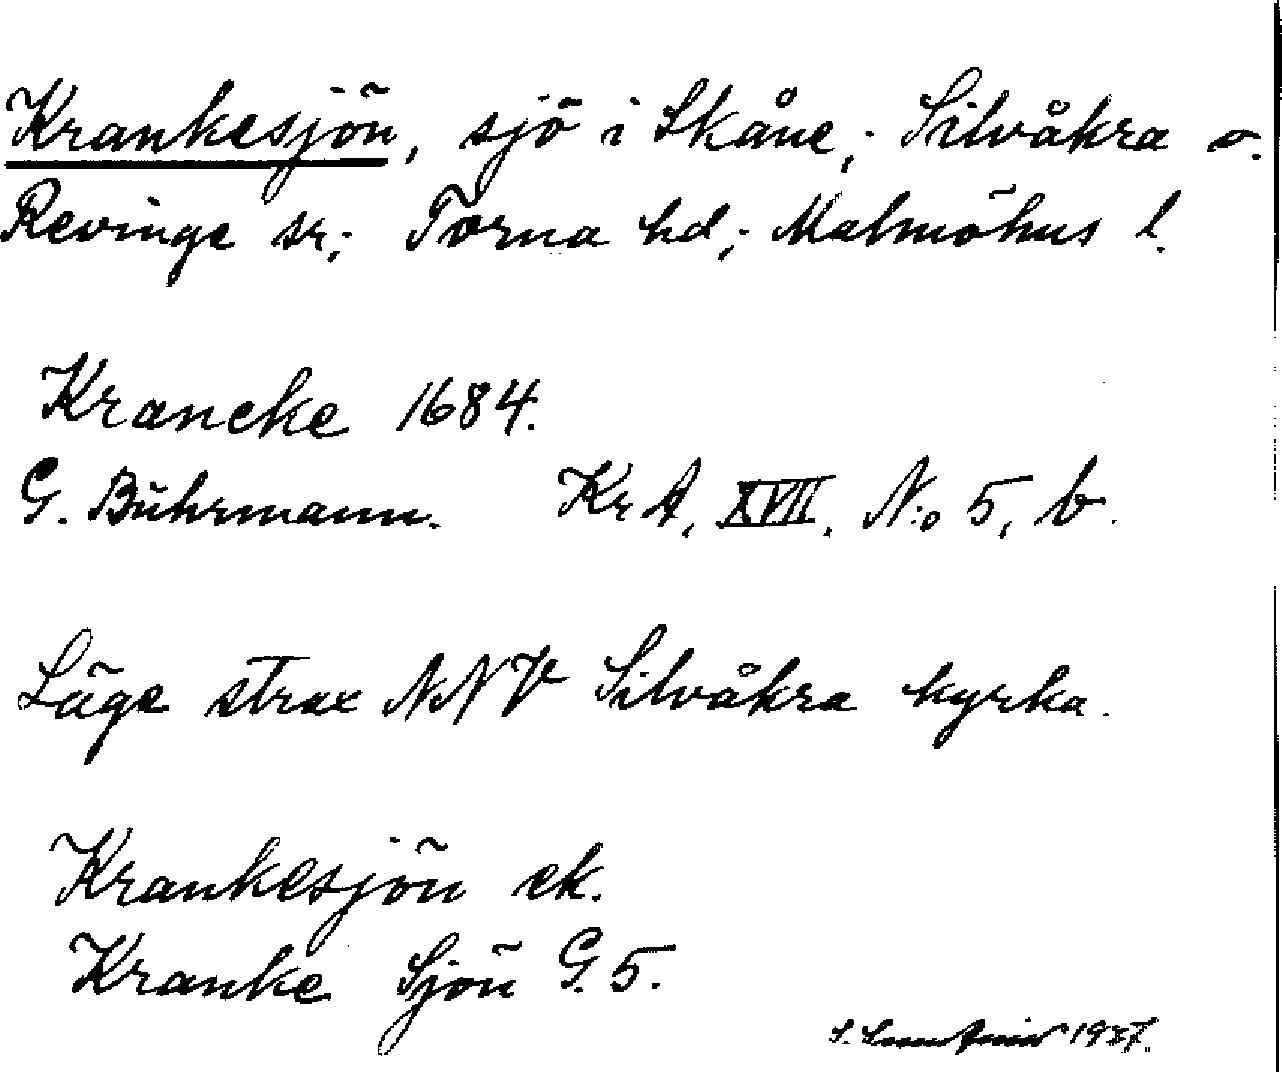 Krankesjön, sjö i Skåne; Silvåkra o.
Revinge sr; Torna hd; Malmöhus l.
Krancke 1684.
G. Bührmann. KrA, XVII, N:o 5, b.
Läge strax NNV Silvåkra kyrka.
Krankesjön ek.
Kranke Sjön G. 5.